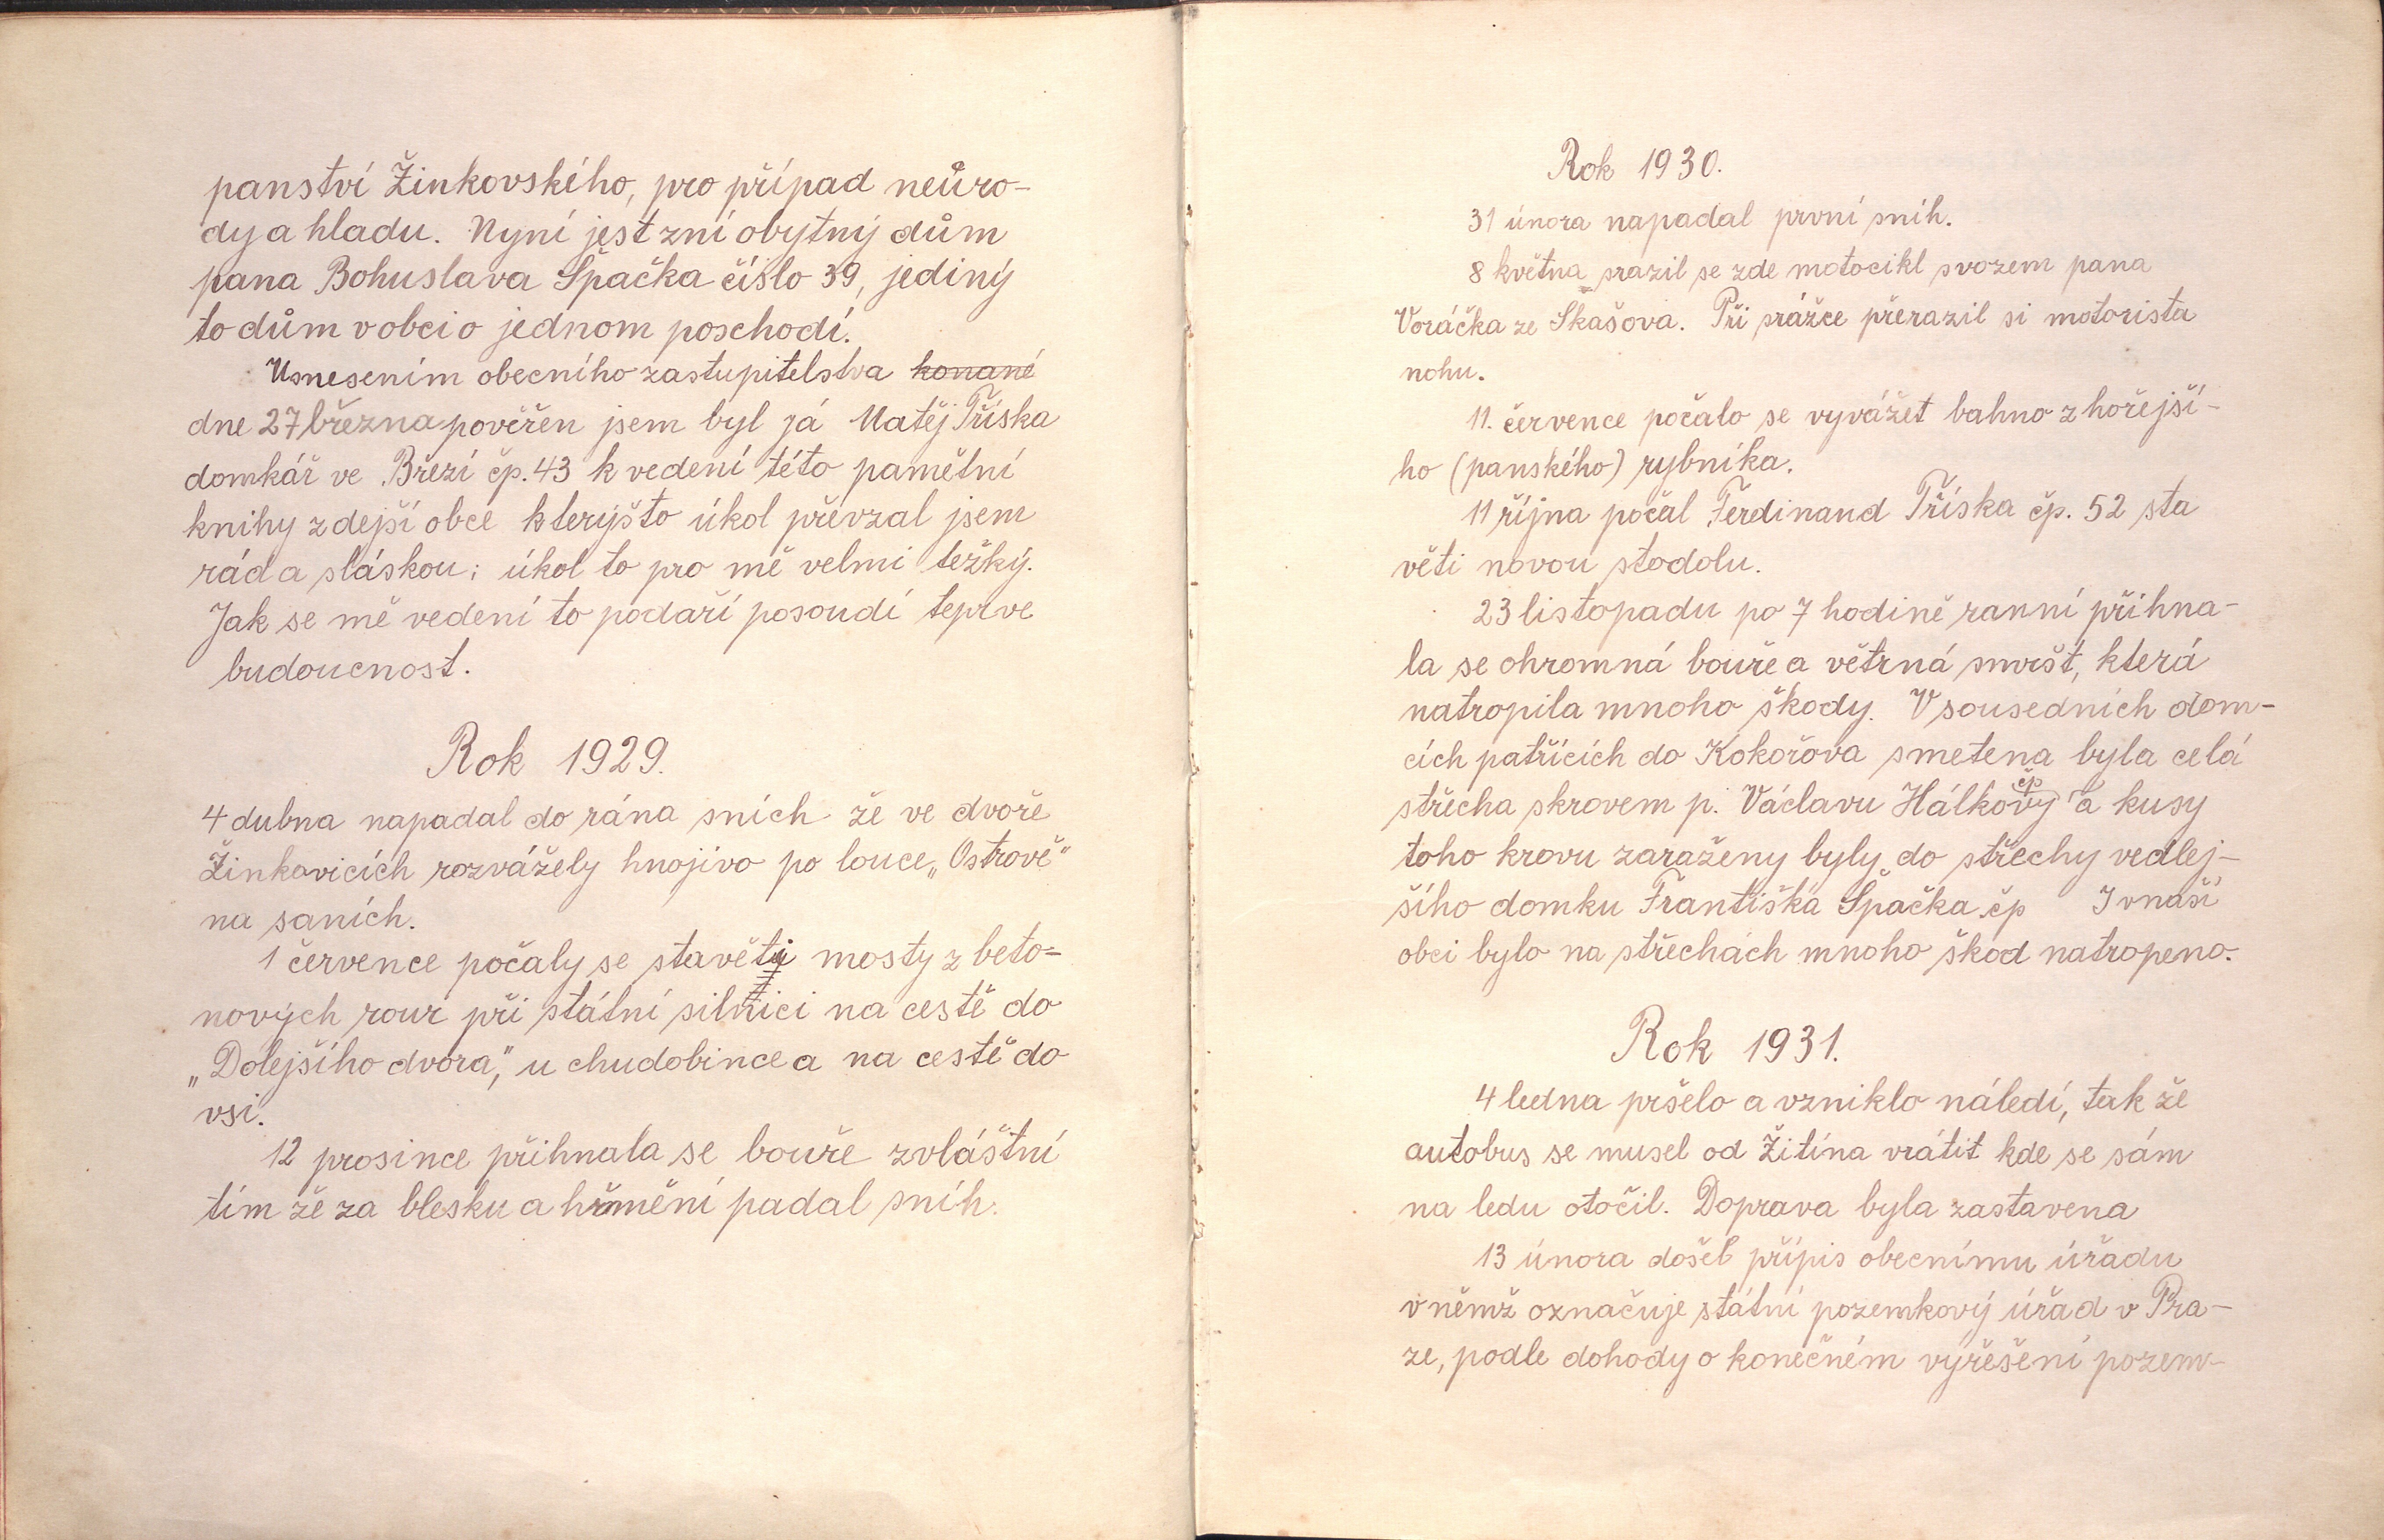 panství Žinkovského, pro případ neůro-
dy a hladu. Nyní jest zní obytný dům
pana Bohuslava Špačka číslo 39, jediný
to dům v obci o jednom poschodí.
Usnesením obecního zastupitelstva konané
dne 27 března pověřen jsem byl já Matěj Tříska
domkář ve Březí čp. 43 k vedení této pamětní
knihy zdejší obce kterýšto úkol převzal jsem
rád a sláskou; úkol to pro mě velmi težký.
Jak se mě vedení to podaří posoudí teprve
budoucnost.
Rok 1929.
4 dubna napadal do rána sních že ve dvoře
Žinkovicích rozvážely hnojivo po louce „Ostrově“
na saních.
1 července počaly se stavěti mosty z beto=
nových rour při státní silnici na cestě do
„Dolejšího dvora,“ u chudobince a na cestě do
vsi.
12 prosince přihnala se bouře zvláštní
tím že za blesku a hřmění padal sníh.
Rok 1930.
31 února napadal první sníh.
8 května srazil se zde motocikl svozem pana
Voráčka ze Skašova. Při srážce přerazil si motorista
nohu.
11. července počalo se vyvážet bahno z hořejší-
ho (panského) rybníka.
11 října počal Ferdinand Tříska čp. 52 sta
věti novou stodolu.
23 listopadu po 7 hodině ranní přihna-
la se ohromná bouře a větrná smršt, která
natropila mnoho škody. V sousedních dom-
cích patřících do Kokořova smetena byla celá
střecha skrovem p. Václavu Hálkovy čp a kusy
toho krovu zaraženy byly do střechy vedlej-
šího domku Františka Špačka čp I vnaší
obci bylo na střechách mnoho škod natropeno.
Rok 1931.
4 ledna pršelo a vzniklo náledí, tak že
autobus se musel od Žitína vrátit kde se sám
na ledu otočil. Doprava byla zastavena
13 února došel přípis obecnímu úřadu
v němž označuje státní pozemkový úřad v Pra-
ze, podle dohody o konečném vyřešení pozem-